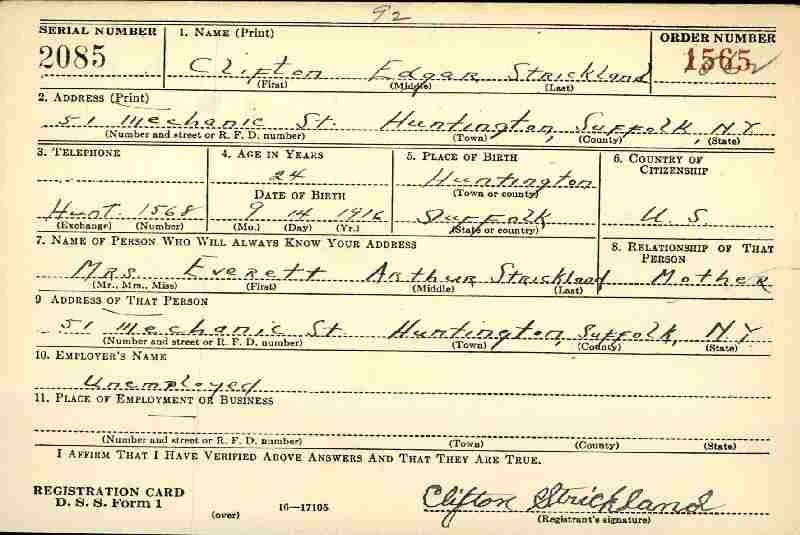 92
SERIAL NUMBER 1. NAME (Print) ORDER NUMBER
2085 Clifton Edgar Strickland 1565
(First) (Middle) (Last)
2. ADDRESS (Print)
51 Mechanic St. Huntington, Suffolk, NY
(Number and street or R. F. D. number) (Town) (County) (State)
3. TELEPHONE 4. AGE IN YEARS 5. PLACE OF BIRTH 6. COUNTRY OF CITIZENSHIP
24 Huntington
DATE OF BIRTH (Town or county)
Hunt. 1568 9 14 1916 Suffolk U.S.
(Exchange) (Number) (Mo.) (Day) (Yr.) (State or country)
7. NAME OF PERSON WHO WILL ALWAYS KNOW YOUR ADDRESS 8. RELATIONSHIP OF THAT PERSON
Mrs Everett Arthur Strickland Mother
(Mr., Mrs., Miss) (First) (Middle) (Last)
9 ADDRESS OF THAT PERSON
51 Mechanic St. Huntington, Suffolk, NY
(Number and street or R. F. D. number) (Town) (County) (State)
10. EMPLOYER'S NAME
Unemployed
11. PLACE OF EMPLOYMENT OR BUSINESS
(Number and street or R. F. D. number) (Town) (County) (State)
I AFFIRM THAT I HAVE VERIFIED ABOVE ANSWERS AND THAT THEY ARE TRUE.
REGISTRATION CARD
D. S. S. Form 1 (over) 16—17105 Clifton Strickland
(Registrant's signature)